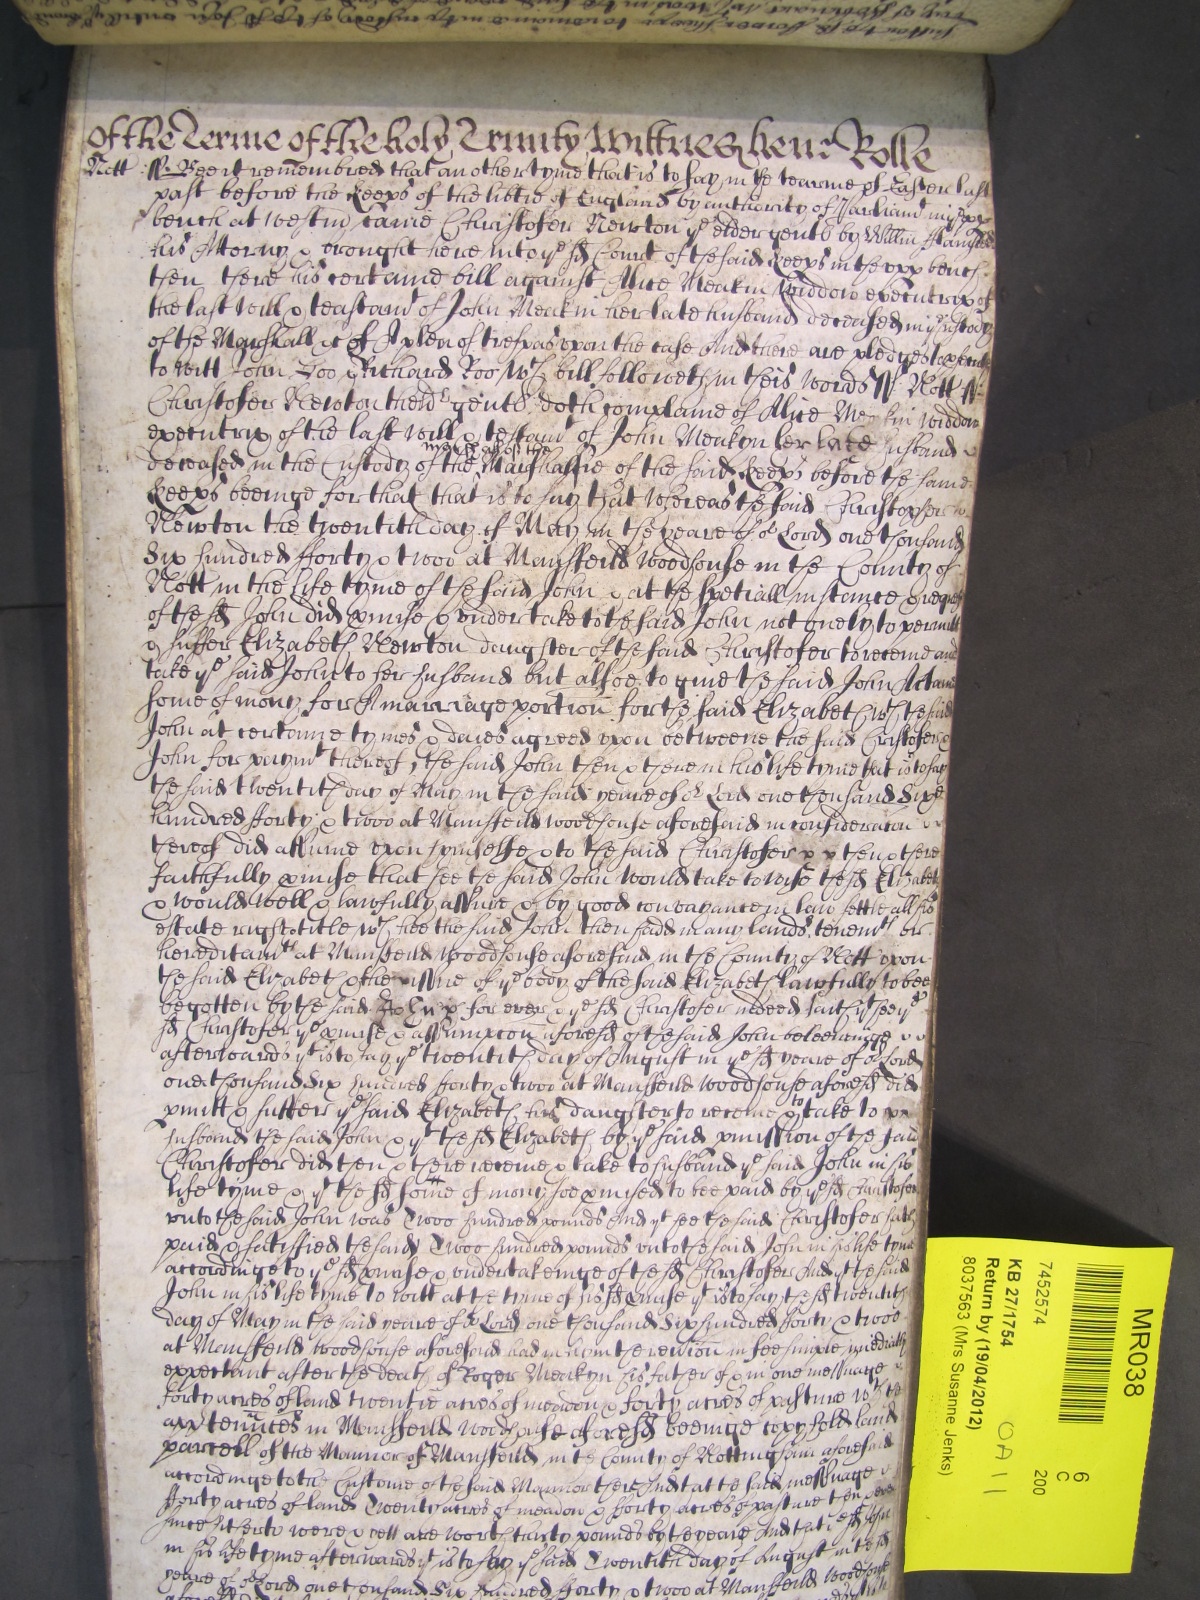 Of the Terme of the holy Trinity Wittnes Henr Rolle
Nott ss. Bee it remembred that an other tyme that is to say in the tearme of Easter last
past before the Keeps of the libtie of England by authority of Parliamt in ye upp
bench at Westm came Christofer Newton ye elder gent by Willm
his Attorny & brought here into ye sd Court of the said Keeps in the upp bench
then there his certaine bill against Alice Meakin Widdow executrix of
the last will & teastamt of John Meakin her late husband deceased in ye custody
of the Marshall &c of A plea of trespas upon the case And there are pledges to prosecute
to witt John Doo & Richard Roo Wch bill followeth in theis words ss Nott ss
Christofer Newton theldr gent doth complaine of Alice Meakin widdow
executrix of the last will & testamt of John Meakyn her late husband
deceased in the Custody of the Marshall of the Marshallsie of the said Keeps before the same
Keeps beeinge for that that is to say that whereas the said Christofer
Newton the twentith day of May in the yeare of or Lord one thousand
Six hundred fforty & twoo at Mansfeild Woodhouse in the County of
Nott in the life tyme of the said John & at the speciall instance & request
of the sd John did pmise & undertake to the said John not onely to permitt
& suffer Elizabeth Newton daughter of the said Christofer to receive and
take ye said John to her husband but allsoe to give the said John A certaine
some of mony for A marriage portion for the said Elizabeth wth the said
John at certaine tymes & daies agreed upon betweene the said Cristofer &
John for paymt thereof, the said John then & there in his life tyme that is to say
the said twentith day of May in the said yeare of or Lord one thousand Sixe
hundred fforty & twoo at Mansfeild woodhouse aforesaid in consideracon
thereof did assume upon hymselfe & to the said Christofer then & there
faithfully pmise that hee the said John would take to wife the sd Elizabeth
& would well & lawfully assure & by good conveyance in law settle all his
estate right & title wch hee the said John then had in any lands, tenemts or
hereditamts at Mansfeild Woodhouse aforesaid in the County of Nott upon
the said Elizabeth & the issue of ye body of the said Elizabeth lawfully to bee
begotten by the said John for ever & ye sd Christofer indeed saith yt hee ye
sd Christofer ye pmise & assumpcon aforesd of the said John beleeveinge
afterwards yt is to say ye twentith day of August in ye sd yeare of or Lord
one thousand Six hundred forty & twoo at Mansfeild woodhouse aforesd did
pmitt & suffer ye said Elizabeth his daughter to receive & take to
husband the said John & yt the sd Elizabeth by ye said pmission of the said
Christofer did then & there receive & take to husband ye said John in his
life tyme & yt the sd some of mony soe pmised to bee paid by ye sd Christofer
unto the said John was Twoo hundred pounds And yt hee the said Christofer hath
paid & satisfied the said Twoo hundred pounds unto the said John in his life tyme
accordinge to ye sd pmise & undertakeinge of the sd Christofer And yt the said
John in his life tyme to witt at the tyme of his sd pmise yt is to say the sd twentith
day of May in the said yeare of or Lord one thousand Six hundred forty & twoo
at Mansfeild woodhouse aforesaid had in him the revcion in fee simple imediatly
expectant after the death of Roger Meakyn his father of & in one messuage
forty acres of land twentie acres of meadow & forty acres of pasture wth the
apptennces in Mansfeild Woodhouse aforesd beeinge copyhold land
parcell of the Mannor of Mansfeild in the County of Nottingham aforesaid
accordinge to the Custome of the said Mannor there And that the said messuage
fforty acres of land Twenty acres of meadow & fforty acres of pasture then were
since hitherto were & still are worth thirty pounds by the yeare And that ye sd John
in his life tyme afterwards yt is to say ye said Twentith day of August in the sd
yeare of or Lord one thousand Six hundred fforty & twoo at Mansfeild Woodhouse
MR038
6
C
200
7452574
KB 27/1754
Return by (19/04/2012)
8037563 (Mrs Susanne Jenks)
OA 11